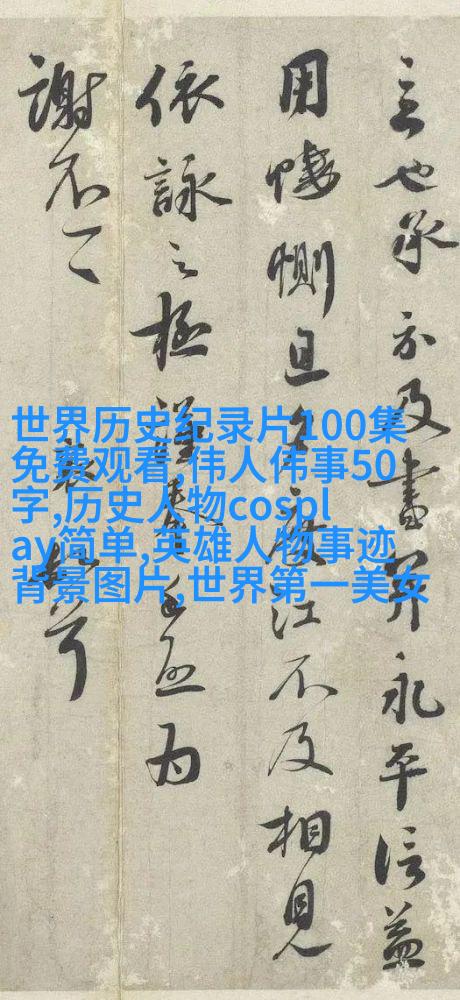 也承示及書并永平信益
用悽惻且江不及相見
依詠之極謹
謝不一
世界历史纪录片100集
免费观看,伟人伟事50
字,历史人物cospl
ay简单,英雄人物事迹
背景图片,世界第一美女